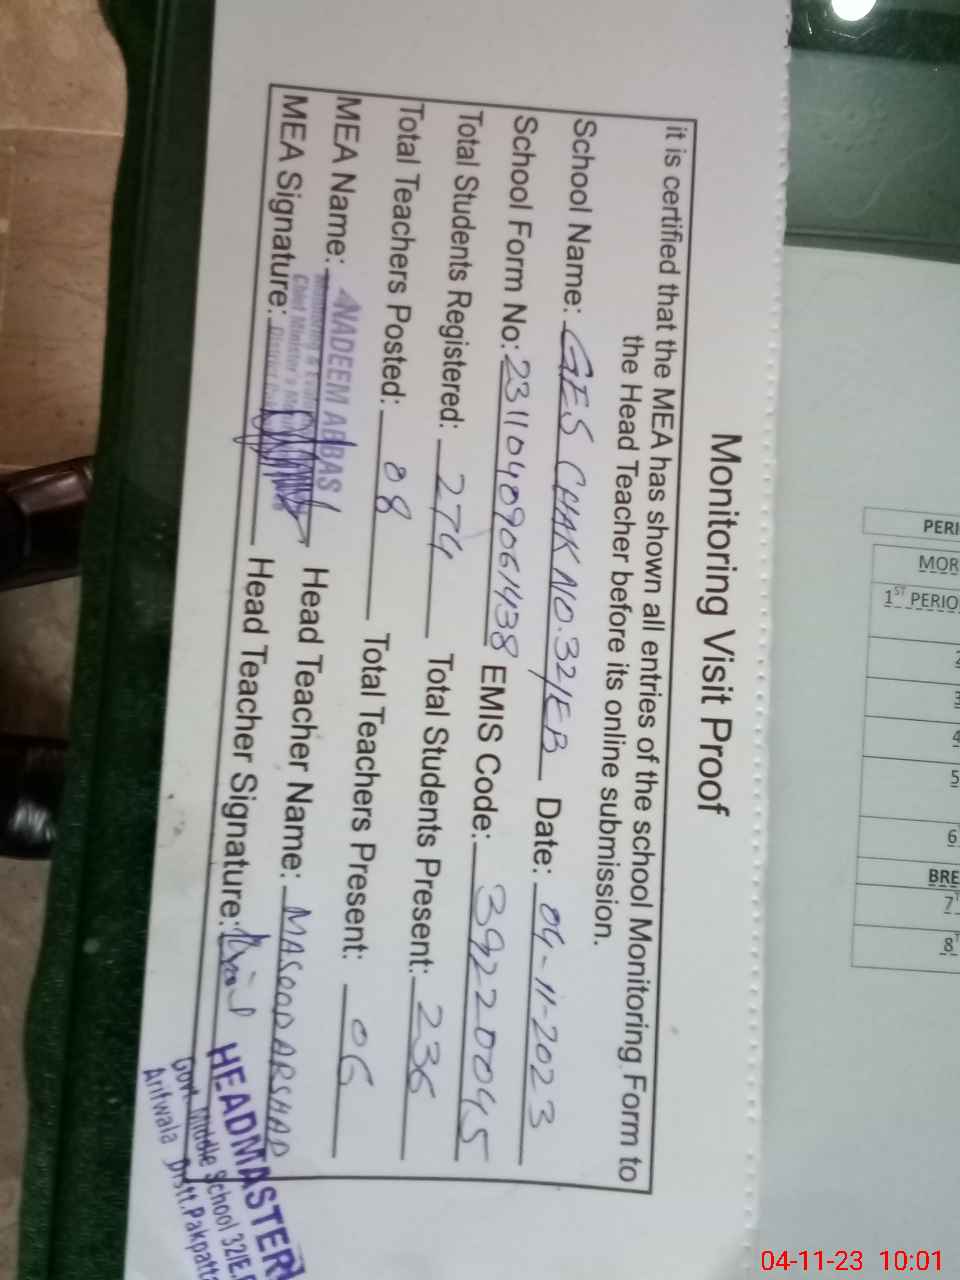 Monitoring Visit Proof
it is certified that the MEA has shown all entries of the school Monitoring Form to
the Head Teacher before its online submission.
School Name: GES CHAK NO.32/EB Date: 04-11-2023
School Form No: 23110409061438 EMIS Code: 39220045
Total Students Registered: 274 Total Students Present: 236
Total Teachers Posted: 08 Total Teachers Present: 06
MEA Name: NADEEM ABBAS Head Teacher Name: MASOOD ARSHAD
Monitoring &
Chief Minister's
District
MEA Signature: Head Teacher Signature:
HEADMASTER
Govt. Middle School 32/E.
Arifwala Distt. Pakpatt
PERI
MOR
1ST PERIO
4
5
6
BRE
7
8
04-11-23 10:01